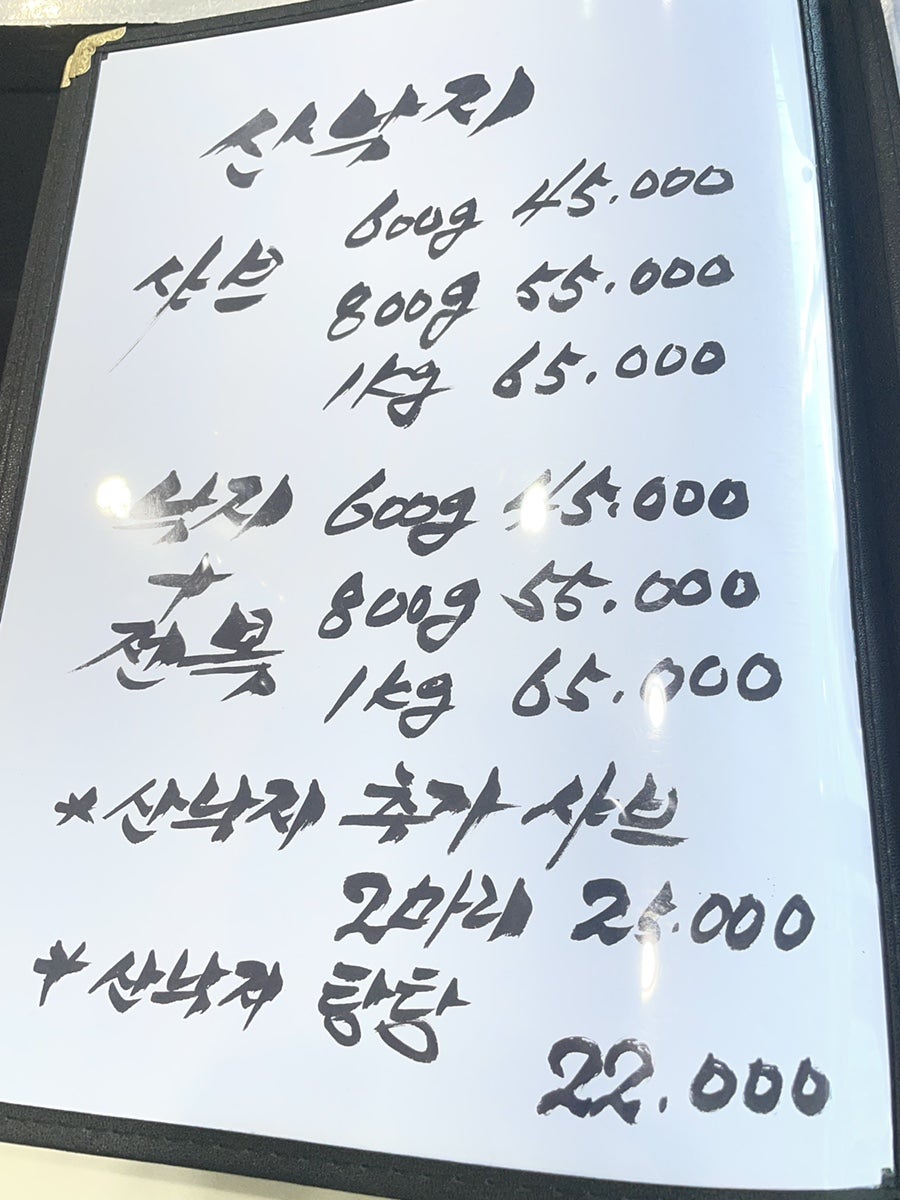 산낙지
600g 45.000
샤브 800g 55.000
1kg 65.000
낙지 600g 45.000
+ 800g 55.000
전복 1kg 65.000
* 산낙지 추가 샤브
2마리 25.000
* 산낙지 탕탕
22.000